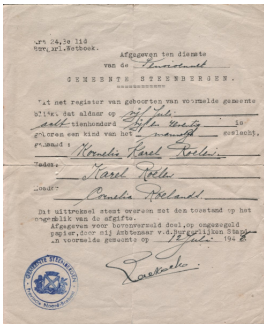 Art 24,3e lid
Burgerl.Wetboek.
Afgegeven ten dienste
van de
GEMEENTE STEENBERGEN.
Uit het register van geboorten van voormelde gemeente
blijkt, dat aldaar op vijf Juli
achttienhonderd is
geboren een kind van het mannelijk geslacht,
genaamd: Kornelis Karel Roelen
Vader:
Karel Roelen
Moeder:
Cornelia Roelands
Dat uittreksel stemt overeen met den toestand op het
oogenblik van de afgifte.
Afgegeven voor bovenvermeld doel, op ongezegeld
papier, door mij Ambtenaar v.d. Burgerlijken Stand
in voormelde gemeente op 12 Juli 194
GEMEENTE STEENBERGEN